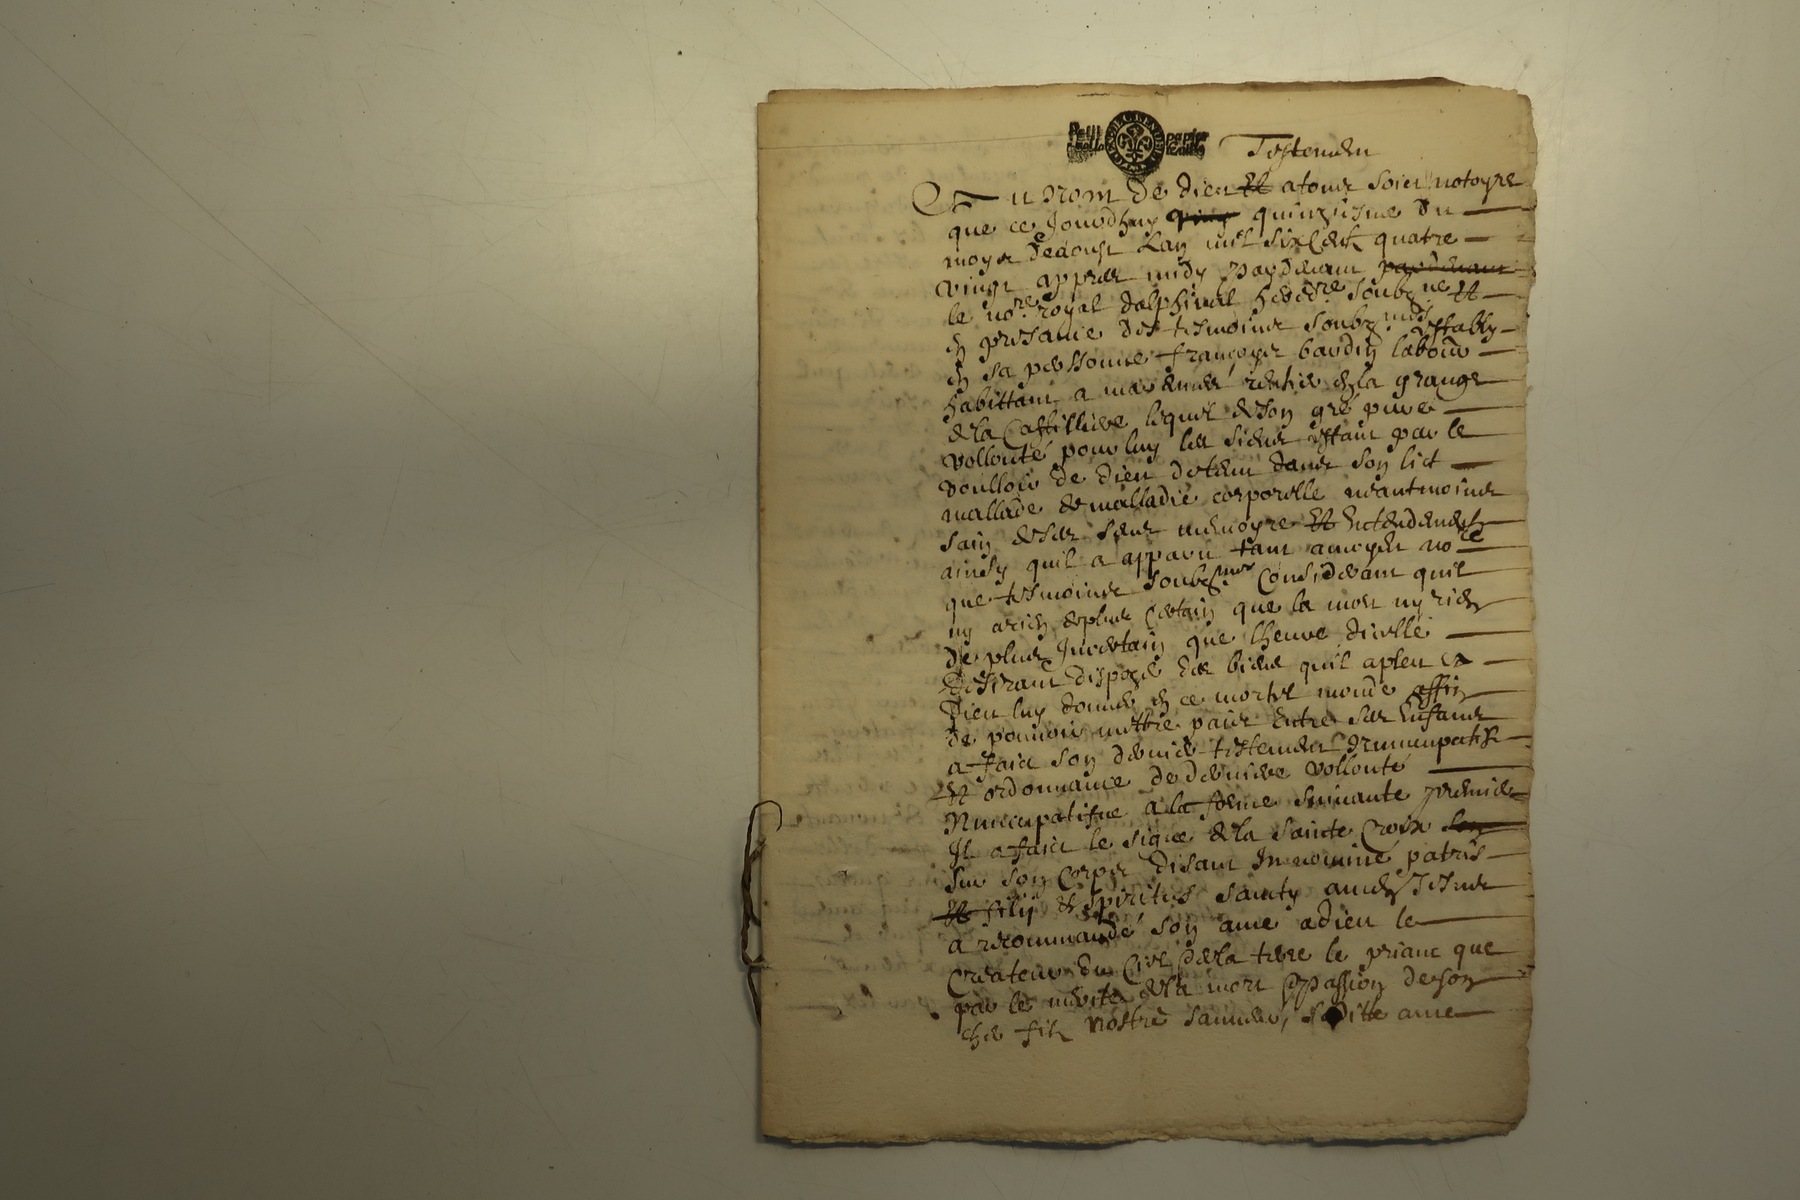 Testemen
Au Nom de dieu Et atous soict notoyre
que ce Jourdhuy quinziesme du
moys daoust Lan mil six Cents quatre
vingt appres midy Pardevant pardevant
le nore royal dalphinal heredre soubzne Et
En presance des tesmoins soubz nmés Establÿ
En sa perssonne françoys baudin laboure
habittant a rentier En la grange
de la lequel de son gré pure
vollonté pour luy les siens Estant par le
voulloir de dieu detenu dans son lict
mallade de malladie corporelle neantmoins
sain de ses sens memoyre Et Entendement
ainsy quil a apparu tant amoyen nore
que tesmoins soubznmes Considerant quil
ny arien de plus Certain que la mort ny rien
de plus Incertain que lheure dicelle
Desirant dispozé des biens quil apleu a
Dieu luy donner En ce mortel monde affin
de pouvoir mettre paict Entre ses Enfans
a faict son dernier testement Nuncupatif
Et ordonnance de derniere vollonté
Nuncupatifve a la forme suivante premier
Il a faict le signe de la sainte Croix son
sur son Corps disant In nomine patris
Et filij Et spiritus sancty amen
a recommandé son ame a dieu le
Createur du Ciel & de la terre le priant que
par le merite de la mort & passion de son
cher filz nostre sauveur, sa ditte ame